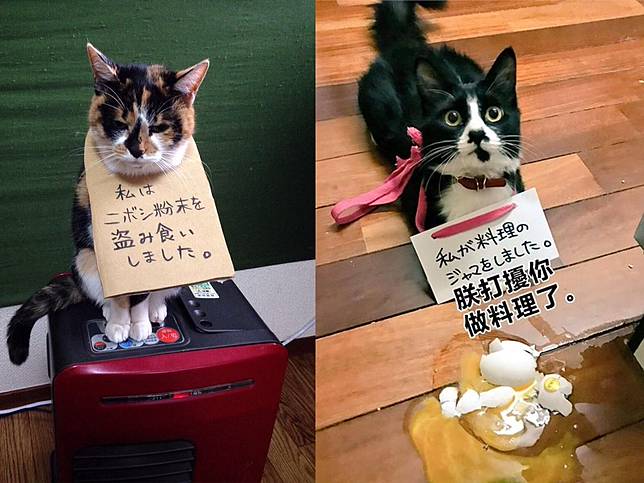 私は
ニボシ粉末を
盗み食い
しました。
私が料理の
ジャマをしました。
朕打擾你
做料理了。